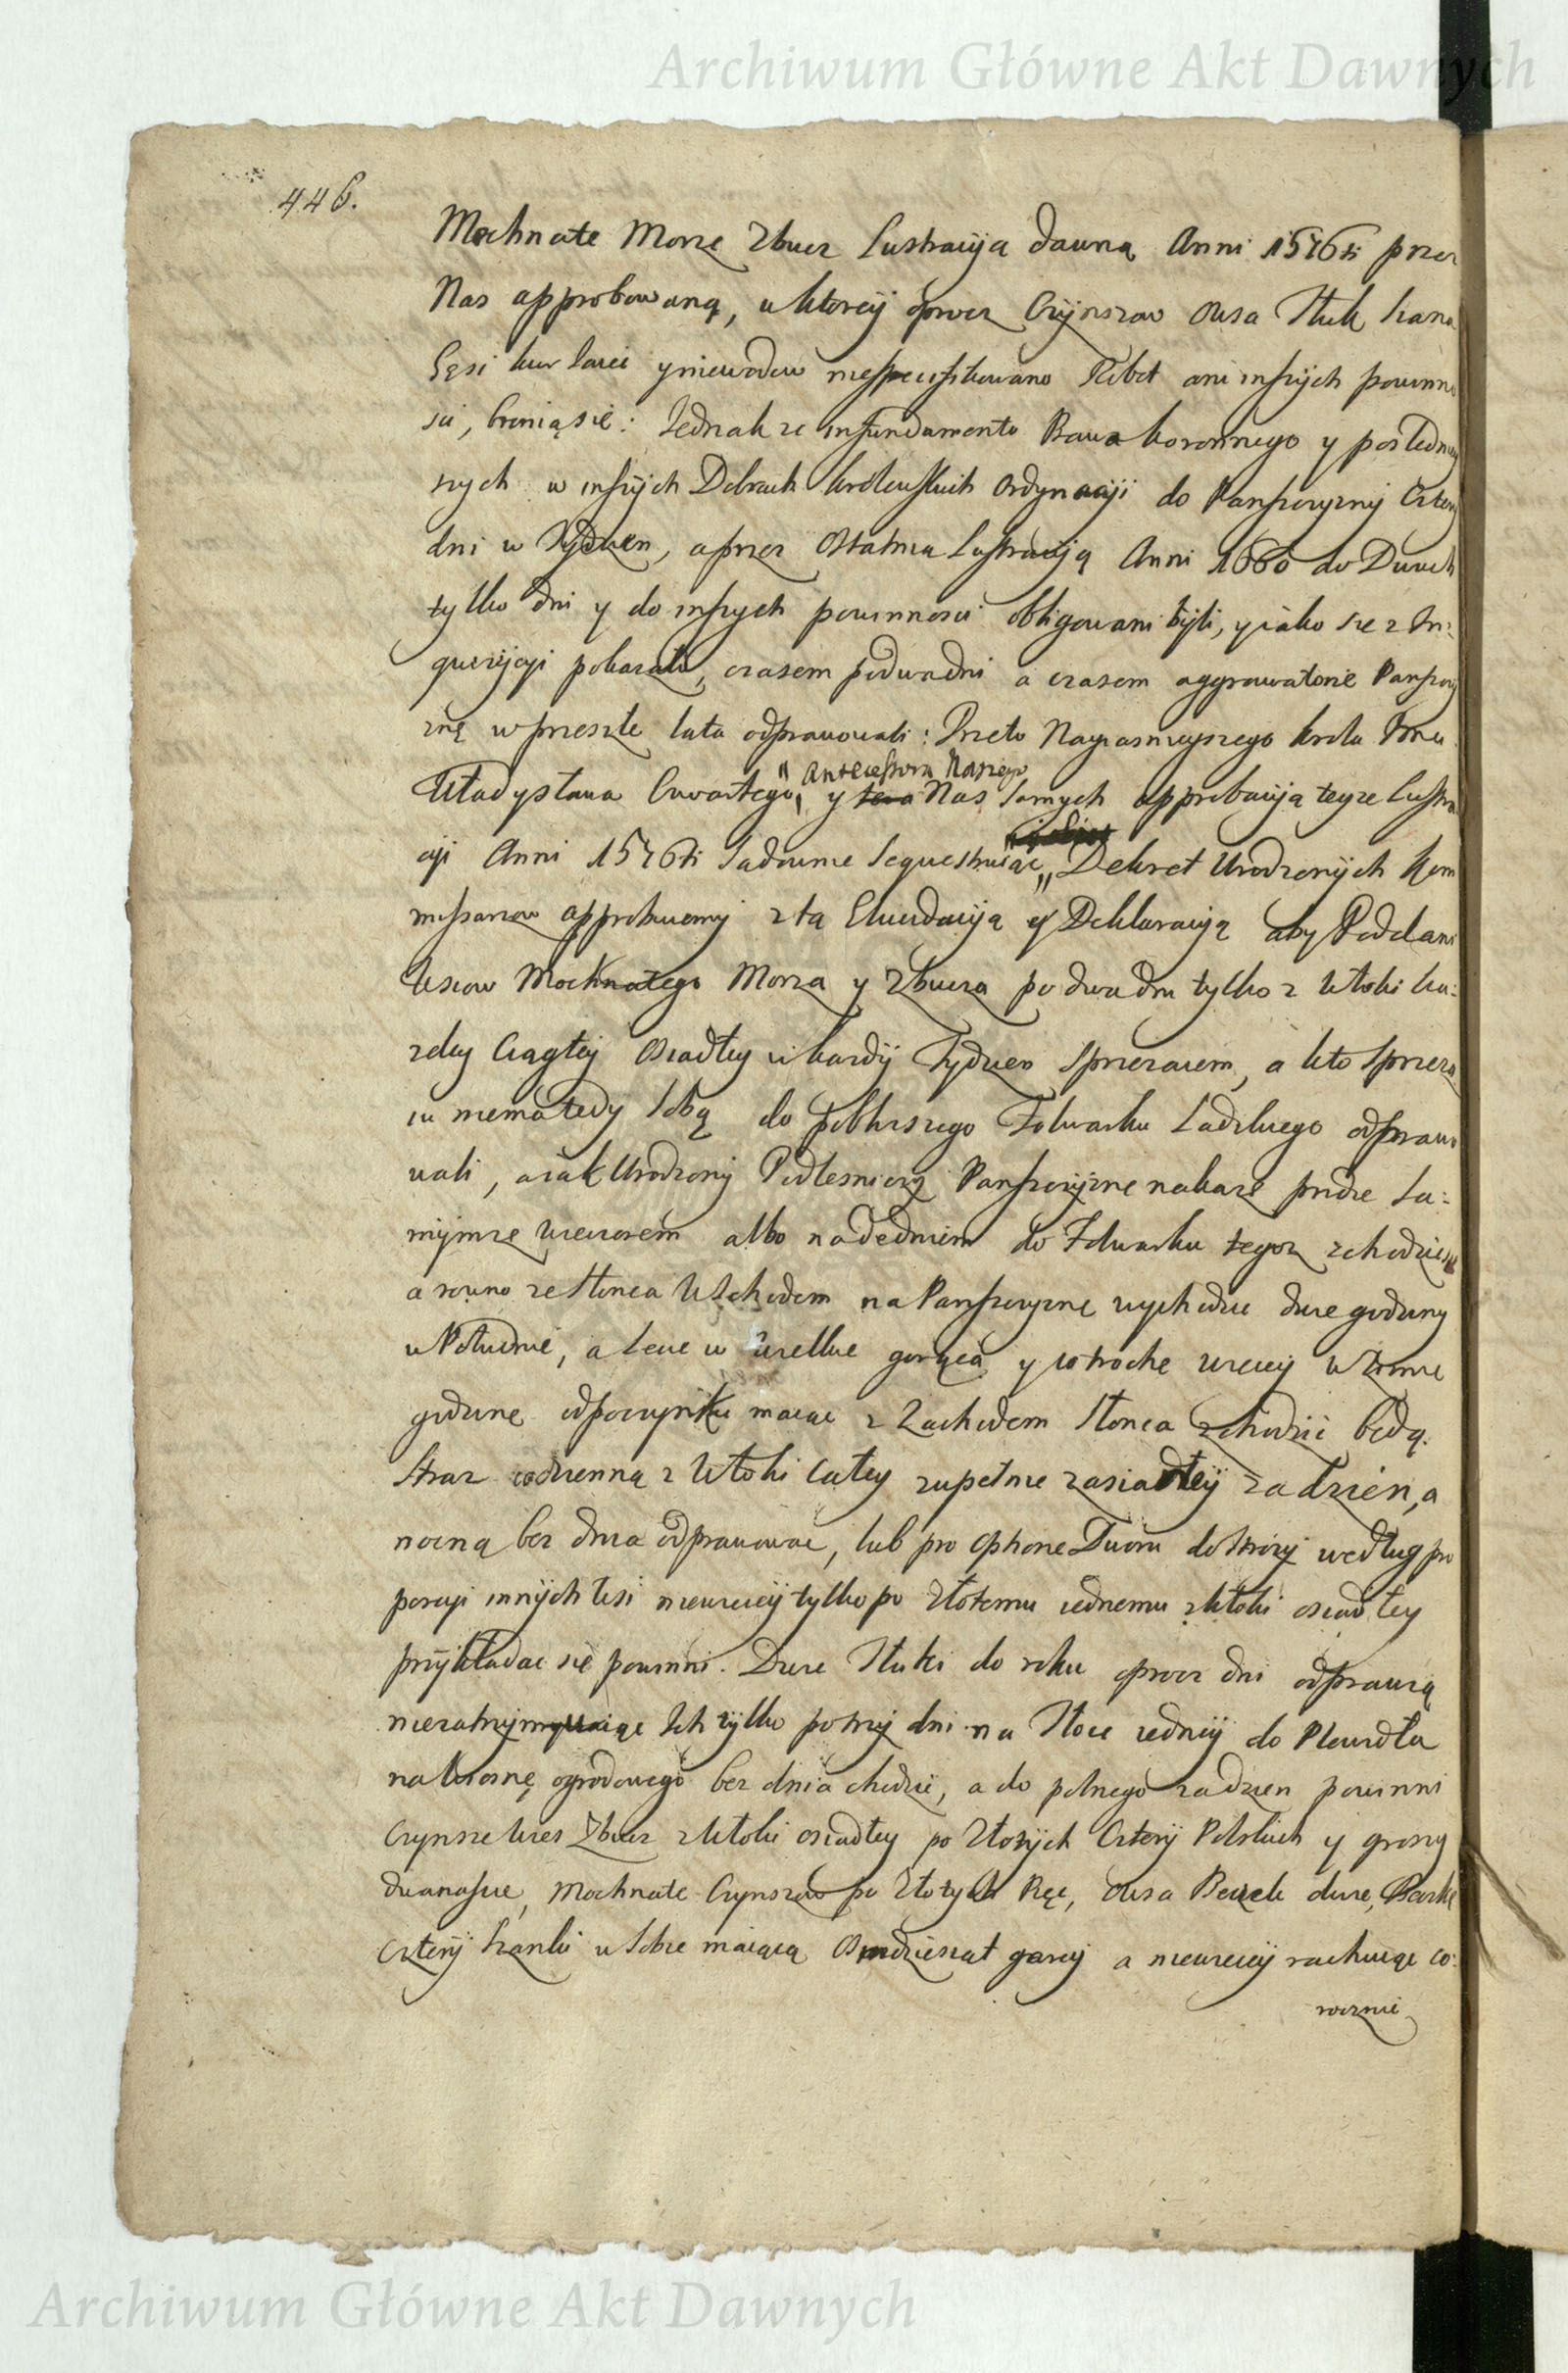 Archiwum Główne Akt Dawnych
446.
Mochnate Morze Zbucz Lustracyja dawną Anni 1576ti przez
Nas approbowaną, w ktorey oprocz Czynszow Owsa Tłuk Siana
Gęsi kur Jaiec y niewodow niespecifikowano Robot ani inszych powinno
sci, bronią się: Jednakze in fundamento Prawa koronnego y poslednie
szych w inszych Dobrach krolewskich Ordynacyi do Panszczyzny Cztery
dni w Tydzien, a przez Ostatnią Lustracyją Anni 1660 do Dwuch
tylko dni y do inszych powinnosci obligowani byli, y iako się z In:
quizycyi pokazało, czasem po dwa dni a czasem aggrawatorie Panszczy
znę w przeszłe lata odprawowali: Przeto Nayiasnieyszego krola Jmci
Władysława Czwartego " Antecessora Naszego y Nas samych approbacyją teyze Lustra
cyi Anni 1576ti Sądownie sequestruiąc " Dekret Urodzonych Kom
missarzow approbuiemy z tą Elucidacyją y Deklaracyją aby Poddani
Wsiow Mochnatego Morza y Zbucza po dwa dni tylko z Włoki ka:
zdey Ciągłey Osiadłey w kazdy Tydzien Sprzezaiem, a kto Sprzeza
iu niema tedy Sobą do pobliszszego Folwarku Ladzkiego odprawo
wali, a iak Urodzony Podlesniczy Panszczyzne nakaze przdze Sa:
mymze wieczorem albo nadedniem do Folwarku tegoz zchodzic się
a rowno ze Słonca Wschodem na Panszczyzne wychodzic dwie godziny
w Południe, a Lecie w wielkie gorąca y potroche wiecey w Zimie
godzine odpoczynku maiąc z Zachodem Słonca zchodzic będą.
Straz codzienną z Włoki Całey zupełnie zasiadłey za dzien, a
nocną bez dnia odprawowac, lub pro optione Dworu do Strozy według pro
porcyi innych Wsi niewiecey tylko po Złotemu iednemu z Włoki osiadłey
przykładac się powinni. Dwie Tłuki do roku oprocz dni odprawią
niezatrzymywaiąc Ich tylko po trzy dni na Tłoce iedney do Plewidła
na Wiosnę ogrodowego bez dnia chodzic, a do polnego za dzien powinni
Czynsze Wies Zbucz z Włoki osiadłey po Złotych Cztery Polskich y groszy
dwanascie, Mochnate Czynszow po Złotych Pęc, Owsa Beczek dwie, Beczke
Cztery Szanki w Sobie maiącą Osmdziesiąt garcy a niewiecey rachuiąc co:
rocznie
Archiwum Główne Akt Dawnych